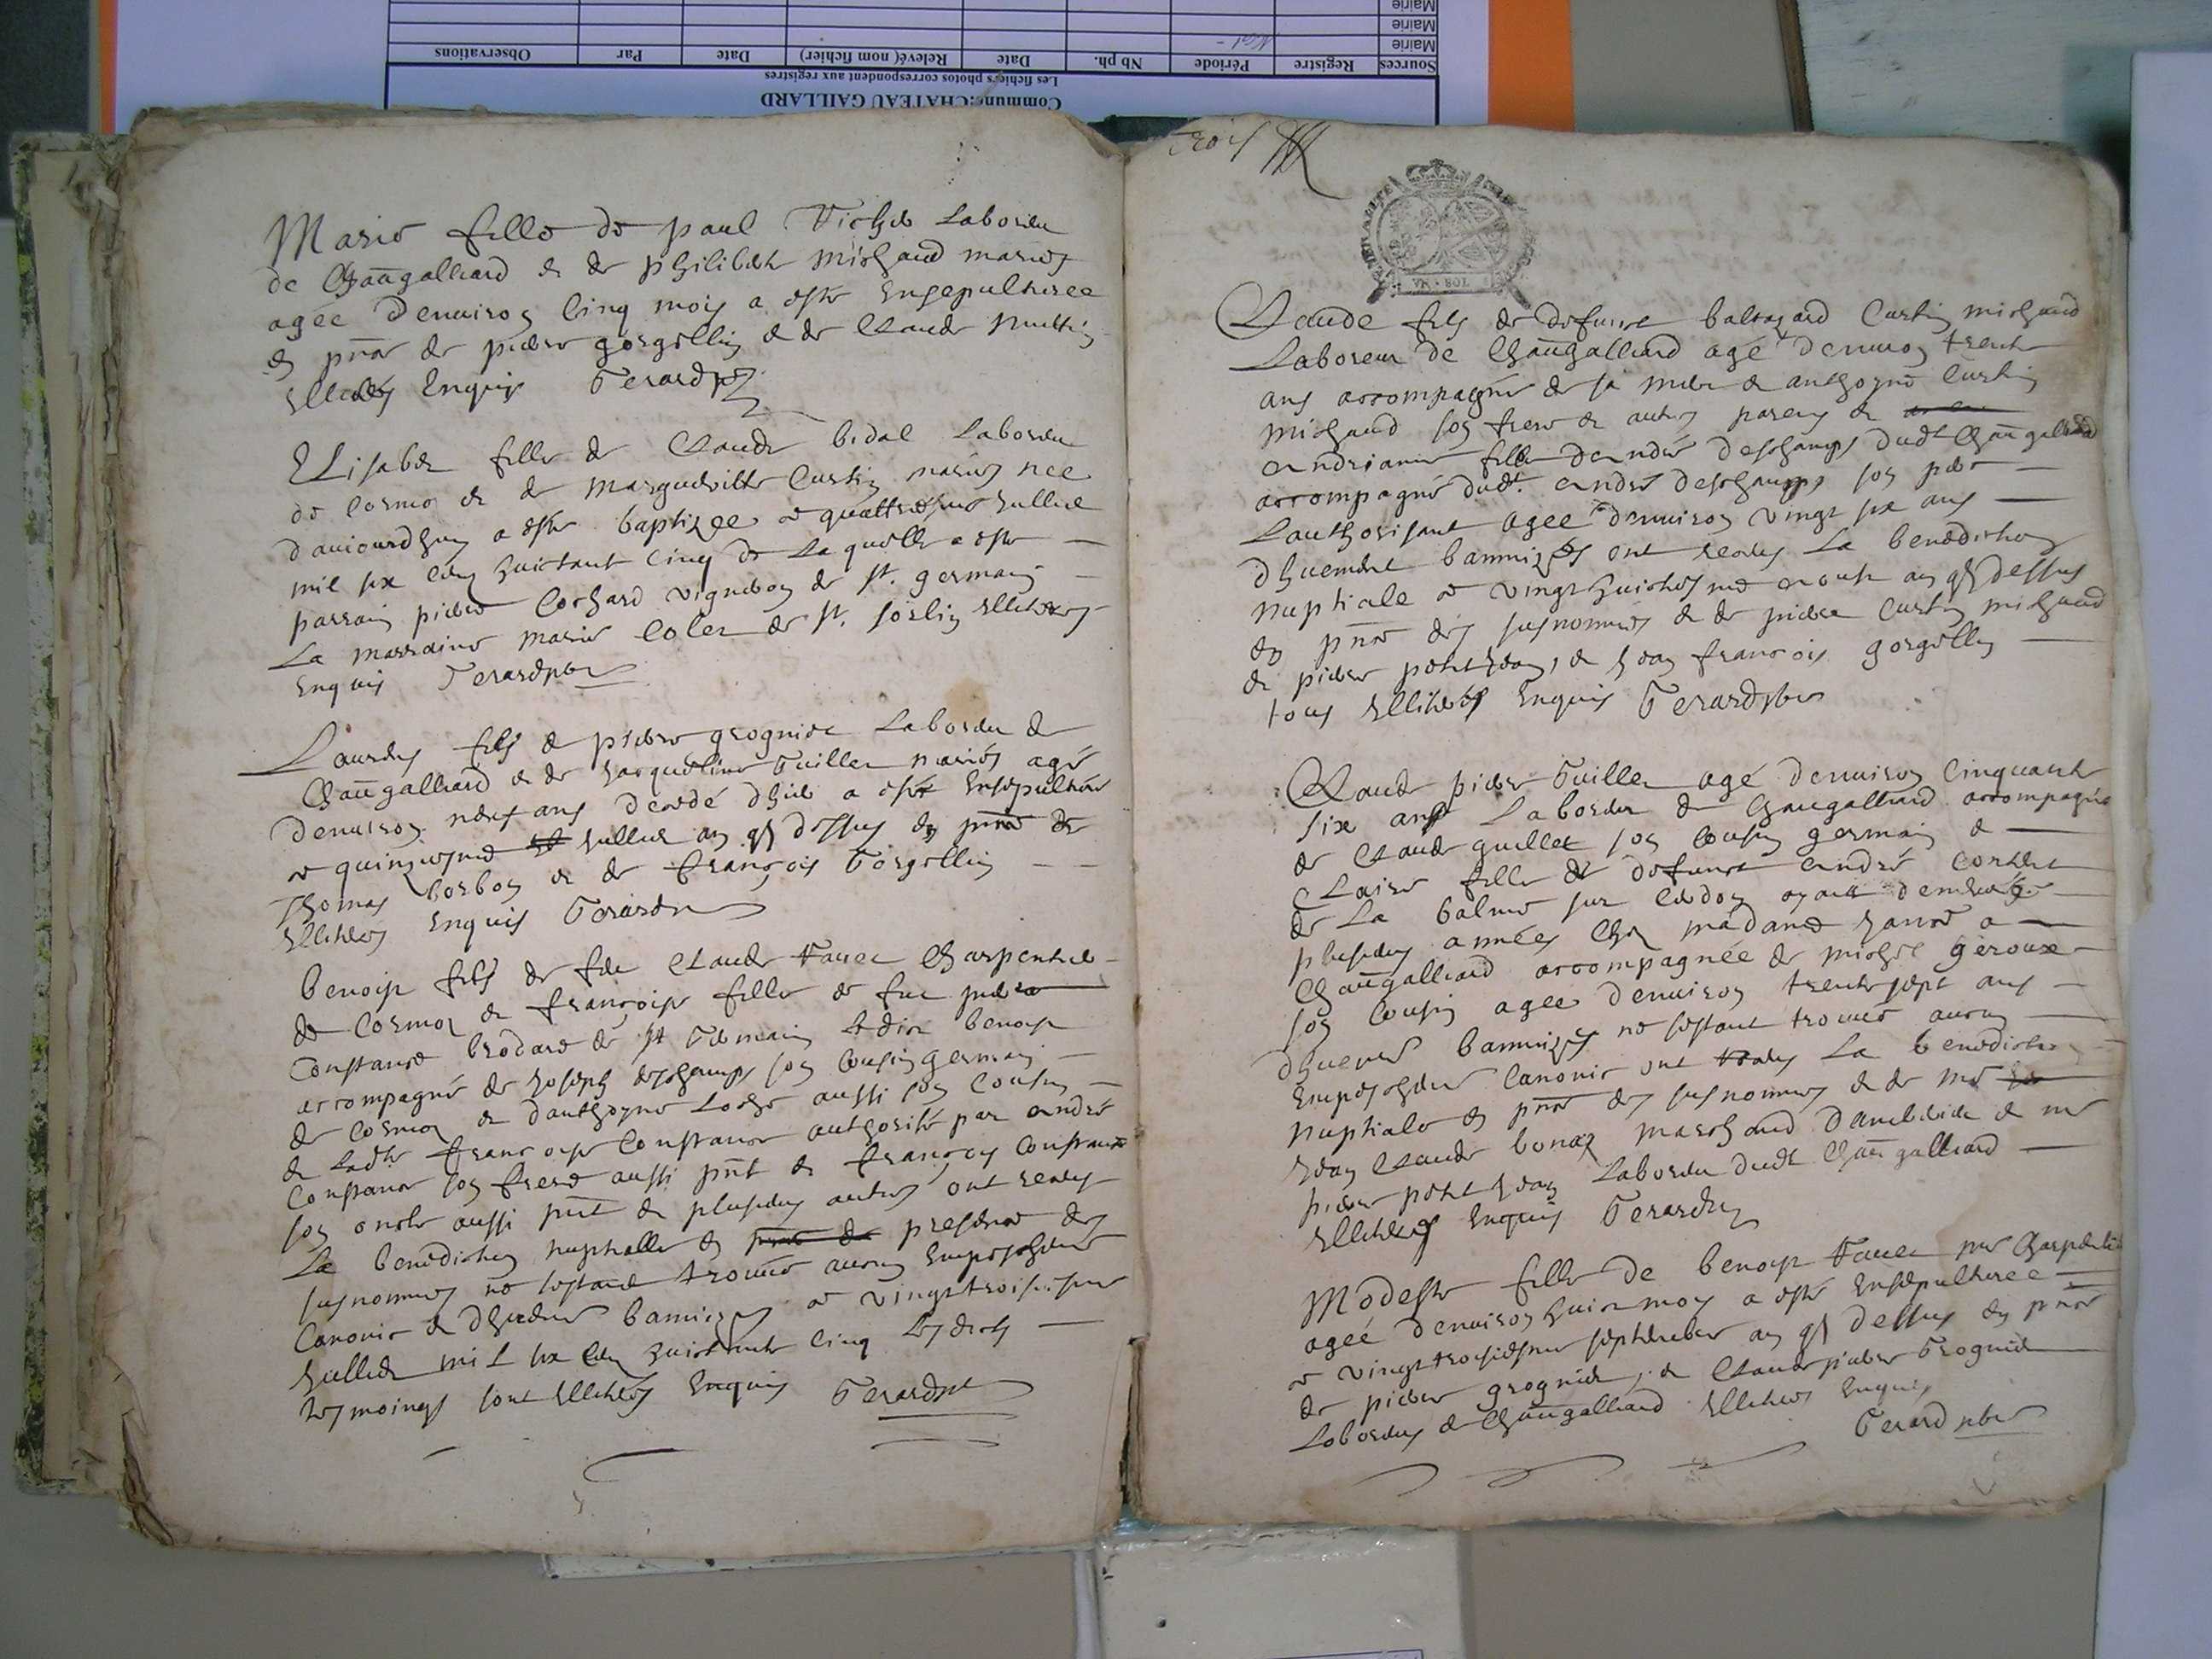 Commune: CHATEAU GAILLARD
Les fichiers photos correspondent aux registres
Sources Registre Période Nb ph. Date Relevé( nom fichier) Date Par Observations
Mairie
Mairie
Mairie
Marie fille de paul Laboreu
de Chaūgalliard & de philiberte michaud mariés
agée denuiron Cinq mois a esté Ensepulturee
en pn̄ce de pierre gorgellin & de Claude
Illiterés Enquis Gerard pbr
ELisabet fille de Claude bidal Laboreu
de Cormo & de Margueritte Curtin mariés nee
daujourdhuy a esté baptizee ce quattriesme Julliet
mil six Cens huictante Cinq de Laquelle a esté
parrain pierre Cochard vigneron de st. germain
La marraine marie Colet de st. sorlin Illiterés
Enquis Gerard pbr
Laurens fils de pierre grogniet Laboreu de
Chaūgalliard & de Jacqueline Guillet mariés agé
denuiron neuf ans decedé dhier a esté Ensepulturé
ce quinziesme Jullet an q̄ dessus en pn̄ce de
Thomas borbon & de françois Gorgellin
Illiterés Enquis Gerard
benoist fils de feu Claude Fauet Charpentier
de Cormoz & françoise fille de feu pierre
Constance brodard de st Germain Ledict benoist
accompagné de Joseph deschamps son Cousin germain
de Cormoz & danthoyne Loche aussi son Cousin
& Ladte françoise Constance authorisée par andré
Constance son frere aussi pn̄t & françois Constance
son oncle aussi pn̄t & plusieurs autres ont receus
La benediction nuptialle en presence des
susnommés ne sestant trouué aucun Empeschement
Canonic & dheuement bannizés ce vingttroisiesme
Julliet mil six Cens huictante Cinq Lesdicts
tesmoings sont Illiterés Enquis Gerard pbr
trois
VN · SOL
Claude fils de defunct baltazard Curtin michaud
Laboreur de Chaūgalliard agé denuiron trente
ans accompagné de sa mere & anthoyne Curtin
michaud son frere & autres parens &
andrianne fille dandré deschamps dudt Chaūgalliard
accompagné dudt. andré deschamps son pere
Lauthorisant agee denuiron vingt six ans
dhuement bannizés ont receus La benediction
nuptiale ce vingthuictiesme aoust an q̄ dessus
en pn̄ce des susnommés & de pierre Curtin michaud
& pierre petit Jean, & Jean françois gorgellin
tous Illiterés Enquis Gerard pbr
Claude pierre Guillet agé denuiron Cinquante
six ans Laboreu de Chaugalliard accompagné
de Claude guillet son Cousin germain &
Claire fille de defunct andré
de La balme sur Cerdon ayant demeuré
plusieurs années Chez madame a
Chaūgalliard accompagnée de michel geroux
son Cousin agee denuiron trente sept ans
dheuement bannizés ne sestant trouué aucun
Empeschement Canonic ont receus La benediction
nuptiale en pn̄ce des susnommés & de me
Jean Claude bonaz marchand & me
pierre petit Jean Laboreu dudt Chaūgalliard
Illiterés Enquis Gerard
Modeste fille de benoist Fauet me Charpentier
ageé denuiron huict moys a esté Ensepulturee
ce vingttroisiesme septembre an q̄ dessus en pn̄ce
de pierre grogniet, & Claude pierre Grogniet
Laboreus de Chaūgalliard Illiterés Enquis
Gerard pbr